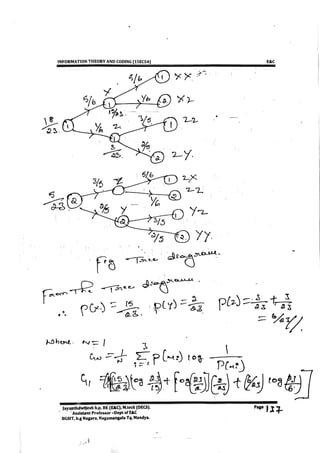 INFORMATION THEORY AND CODING (15EC54) E&C
5/6 1 X X
X
5/6 1 1/6 2 X Z
15/23
18/23 1
1/6 Z 3/5 1 Z Z
2
3/23 2/5 2 Z Y
5/6 1 Z X
3/5 Z 1
5/23 2 1/6 2 Z Z
2/5 Y 2 1 Y Z
3/5
2/5 2 Y Y
Fig Tree diagram.
From The Tree diagram.
∴ P(X) = 15/23 P(Y) = 2/23 P(Z) = 3/23 + 3/23
= 6/23
Where N = 1
3
GN = 1/N Σ P(mi) log 1/P(mi)
i = 1
G1 = [(15/23) log 23/15 + log(23/2) (2/23) + (6/23) log 23/6]
Jayanthdwijesh h.p. BE (E&C), M.tech (DECS). Page 137
Assistant Professor –Dept of E&C
BGSIT, b.g Nagara, Nagamangala Tq, Mandya.